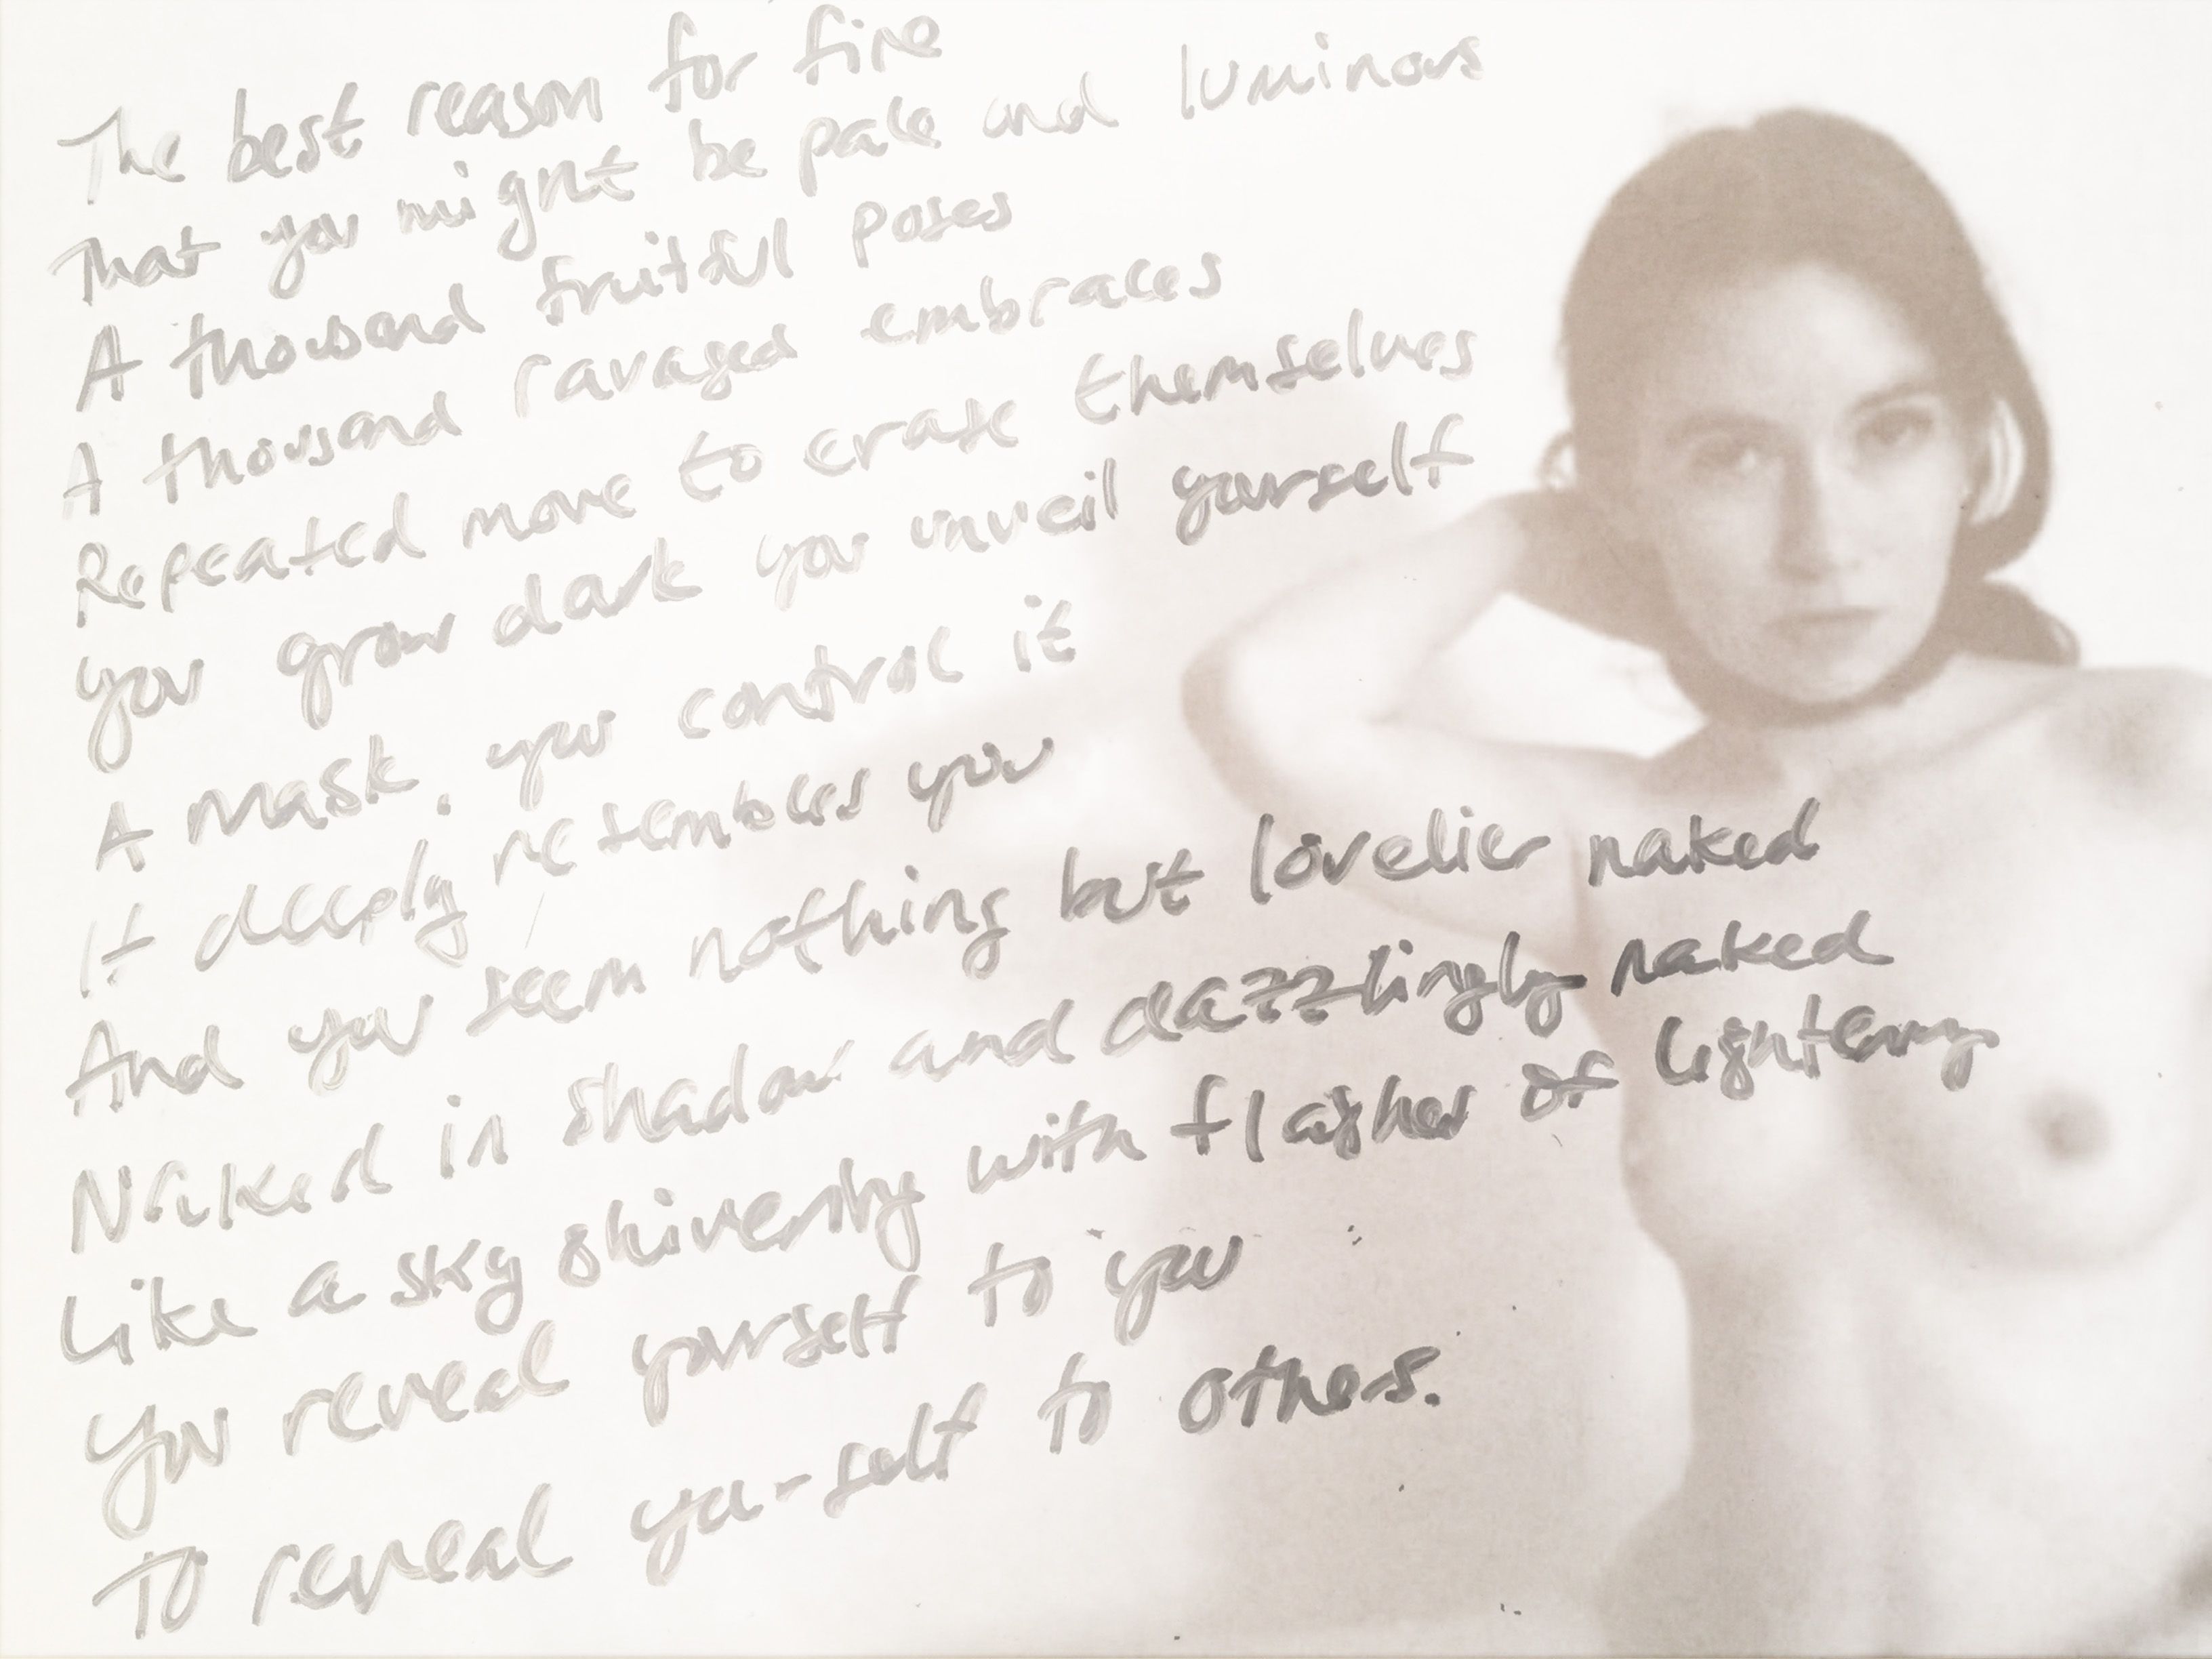 The best reason for fire
That you might be pale and luminous
A thousand fruitful poses
A thousand ravaged embraces
Repeated move to erase themselves
you grow dark you unveil yourself
A Mask, you control it
It deeply resembles you
And you seem nothing but lovelier naked
Naked in shadow and dazzlingly naked
Like a sky shivering with flashes of lightening
You reveal yourself to you
To reveal your-self to others.